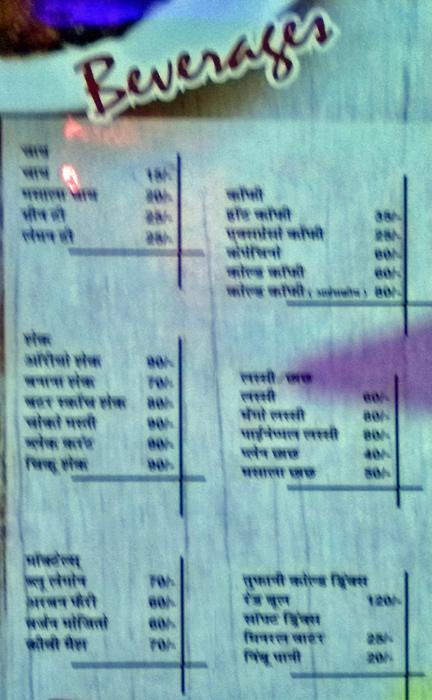 Beverages
चाय
चाय 15/-
मसाला चाय 20/-
ग्रीन टी 25/-
लेमन टी 25/-
कॉफी
हॉट कॉफी 35/-
एक्सप्रेसो कॉफी 25/-
कॅपेचिनो 60/-
कोल्ड कॉफी 60/-
कोल्ड कॉफी 80/-
शेक
ओरियो शेक 90/-
बनाना शेक 70/-
बटर स्कॉच शेक 80/-
चोको मस्ती 90/-
ब्लॅक करंट 90/-
चिकू शेक 90/-
लस्सी / छाछ
लस्सी 60/-
मँगो लस्सी 80/-
पाईनॅपल लस्सी 80/-
प्लेन छाछ 40/-
मसाला छाछ 50/-
मॉकटेल्स
ब्लू लेगोन 70/-
60/-
वर्जन मोजितो 60/-
70/-
तुफानी कोल्ड ड्रिंक्स
रेड बुल 120/-
सॉफ्ट ड्रिंक्स
मिनरल वाटर 25/-
निंबू पानी 20/-